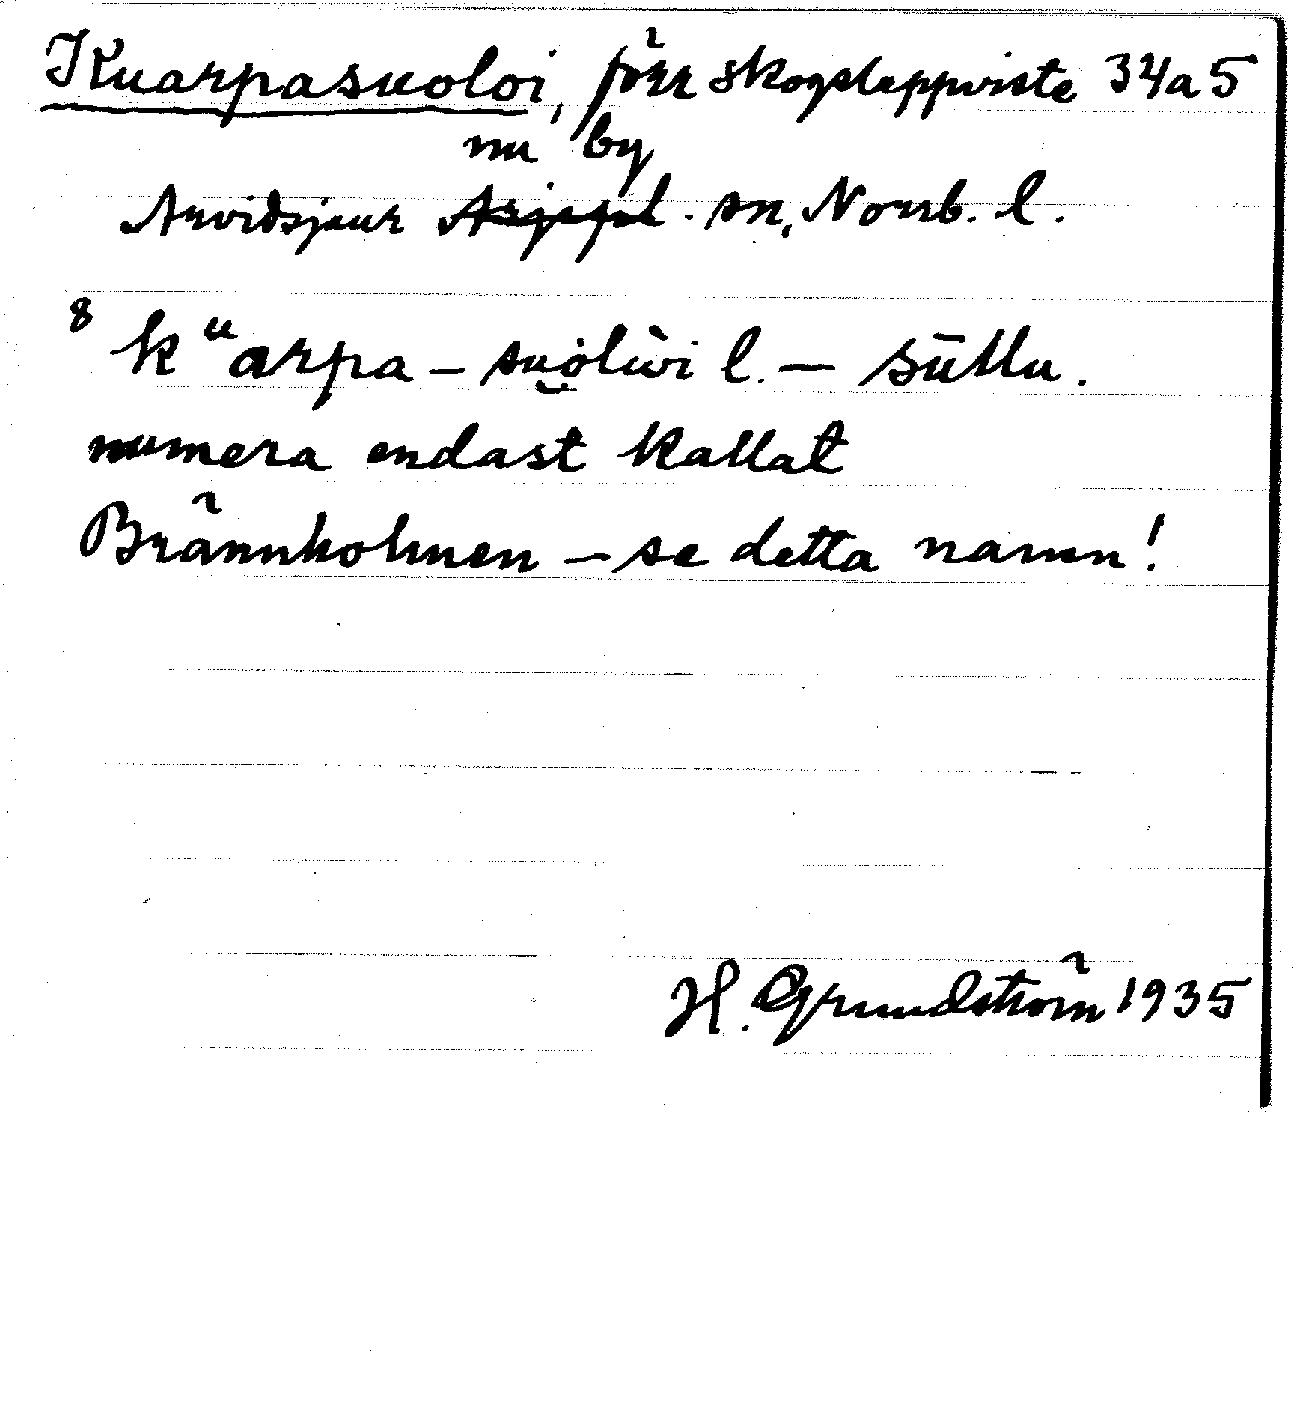 Kuarpasuoloi, förr skogslappviste 34a5
nu by
Arvidsjaur Arjepl. sn, Norrb. l.
8 kᵘarpa – suo̯lùi l. – sūllu.
numera endast kallat
Brännholmen – se detta namn!
H. Grundström 1935